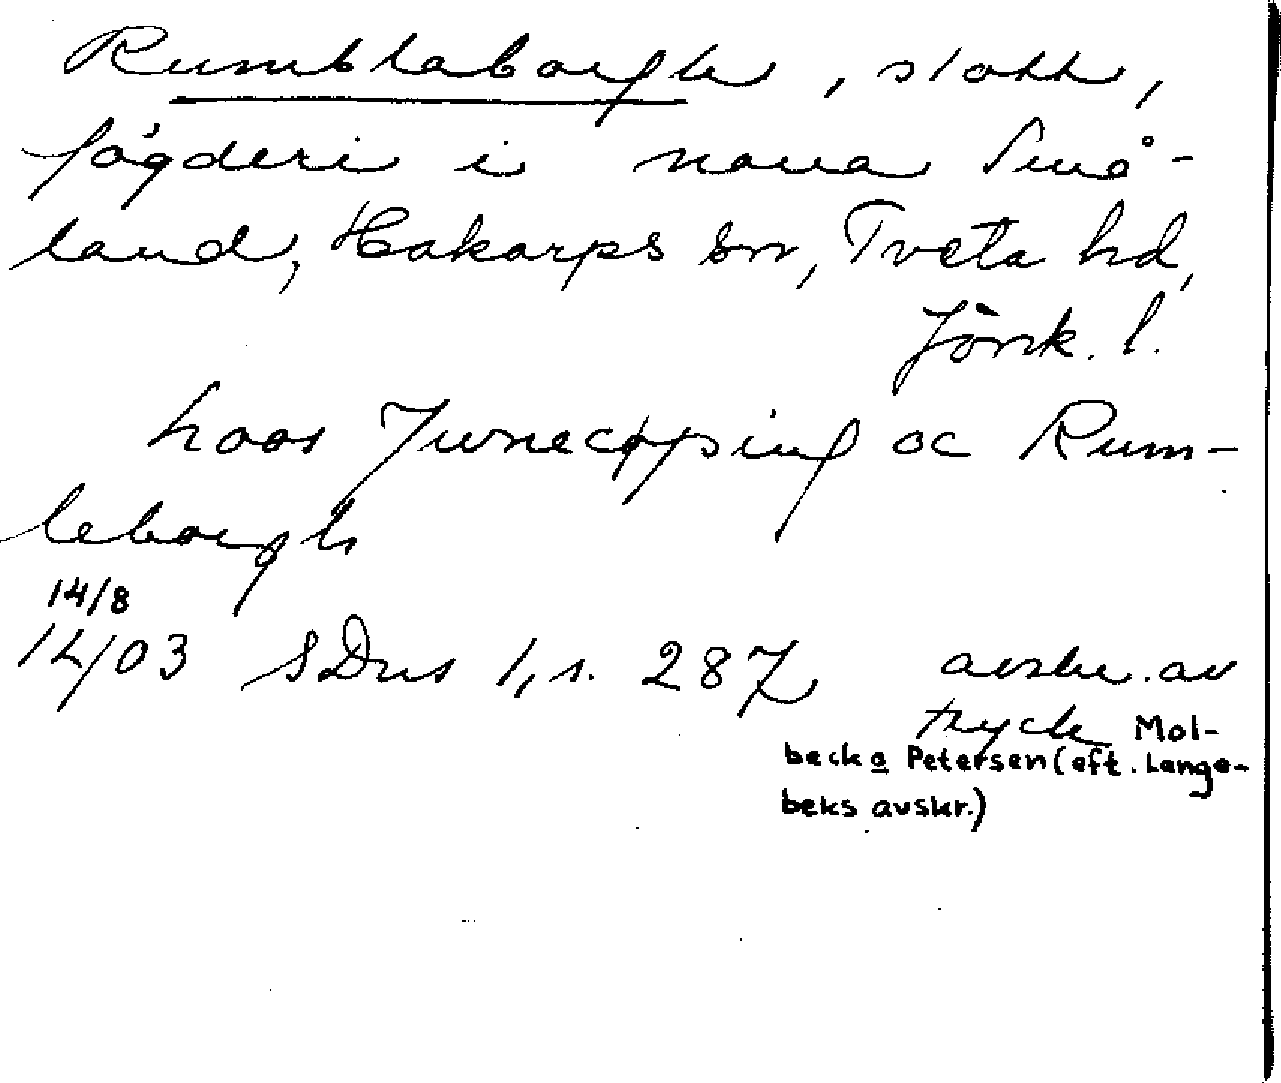 Rumblaborgh, slott,
fögderi i norra Små-
land, Hakarps sn, Tveta hd,
Jönk. l.
hoos Junecøping oc Rum-
leborgh
14/8
1403 SDns 1, s. 287 avskr. av
tryck Mol-
beck o Petersen (eft. Lange-
beks avskr.)